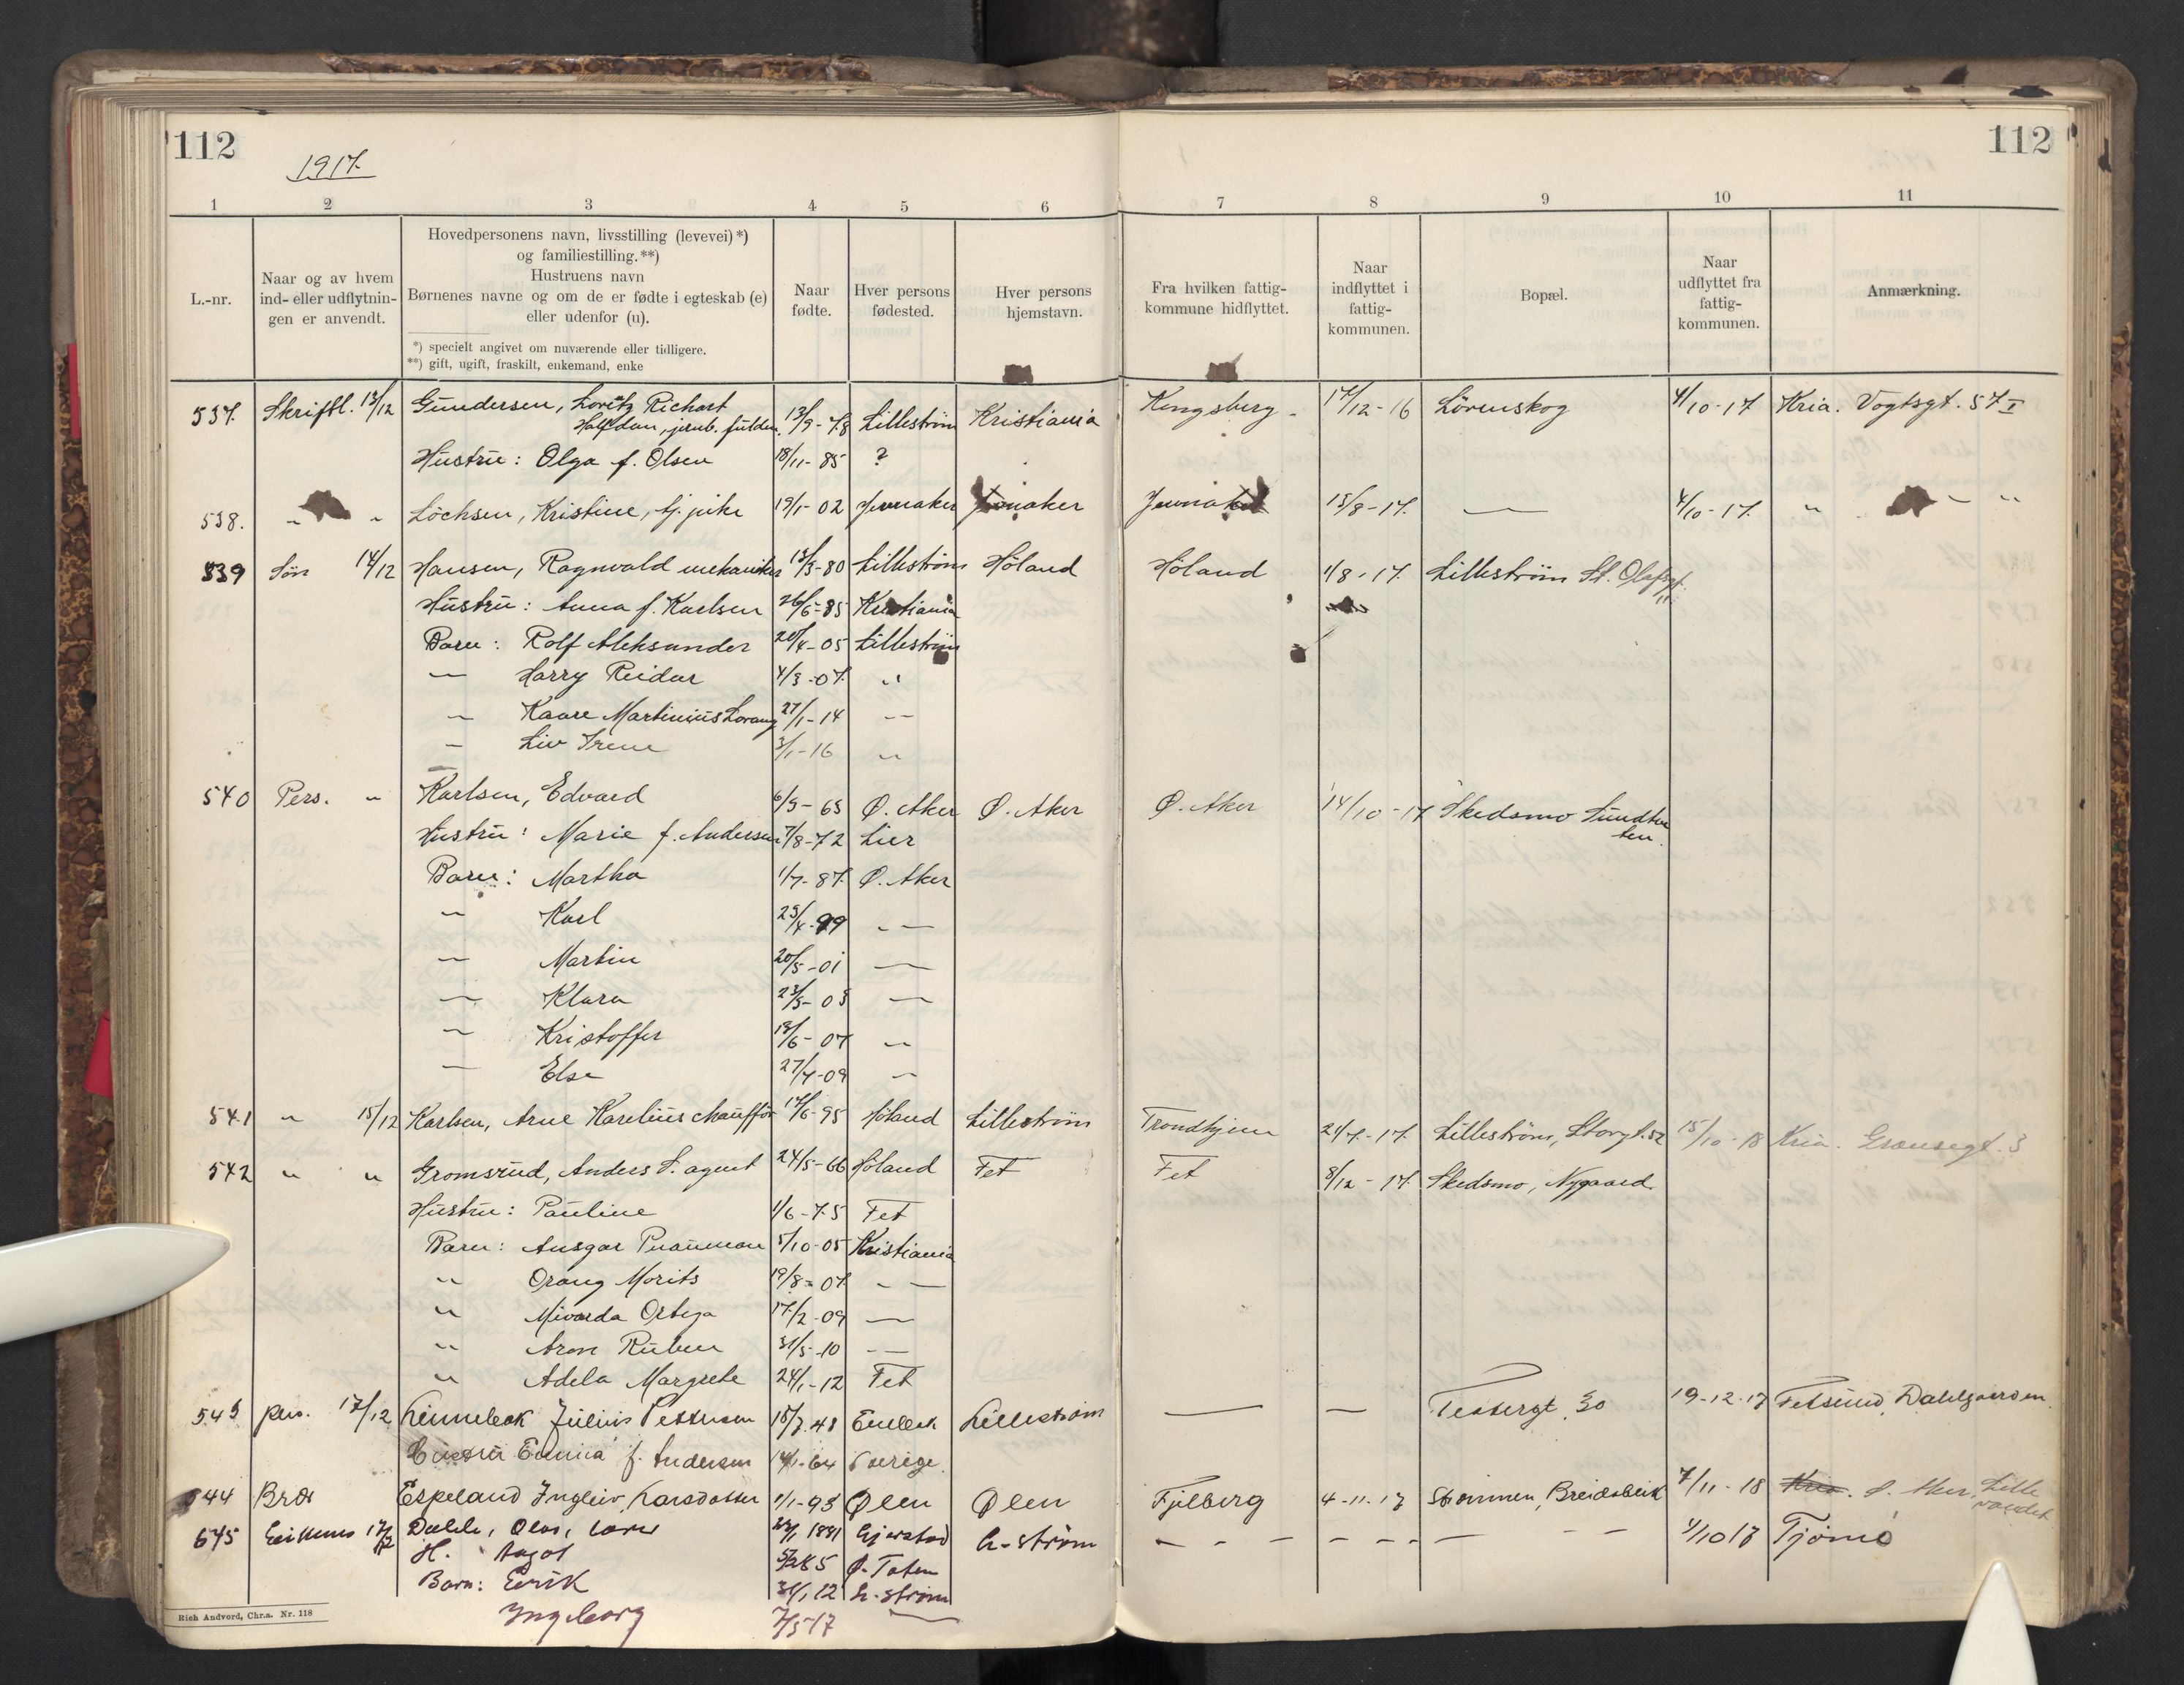 112
112
1917.
1 2 3 4 5 6 7 8 9 10 11
L.-nr.
Naar og av hvem
ind- eller udflytnin-
gen er anvendt.
Hovedpersonens navn, livsstilling (levevei) *)
og familiestilling. **)
Hustruens navn
Børnenes navne og om de er fødte i egteskab (e)
eller udenfor (u).
*) specielt angivet om nuværende eller tidligere.
**) gift, ugift, fraskilt, enkemand, enke
Naar
fødte.
Hver persons
fødested.
Hver persons
hjemstavn.
Fra hvilken fattig-
kommune hidflyttet.
Naar
indflyttet i
fattig-
kommunen.
Bopæl.
Naar
udflyttet fra
fattig-
kommunen.
Anmærkning.
537. Skriftl. 13/12 Gundersen, Loritz Richart
Halfdan, jernb. fuldm. 13/9-78 Lillestrøm Kristiania Kongsberg - 17/12-16 Lörenskog 4/10-17 Kria. Vogtsgt. 57 I
Hustru: Olga f. Olsen 18/11-85 ?
538. " " Löchsen, Kristine, tj. pike 19/1-02 Jevnaker Jevnaker Jevnaker 15/8-17. — 4/10-17. " " "
539 Søn 14/12 Hansen, Ragnvald mekaniker 13/3-80 Lillestrøm Höland Höland 1/8-17. Lilleström St. Olafsgt.
Hustru: Anna f. Karlsen 26/5-85 Kristiania
Barn: Rolf Aleksander 20/4-05 Lilleström
— Harry Reidar 4/3-07. "
— Kaare Martinius Lorang 27/1-14 —
— Liv Irene 3/1-16 "
540 Pers. " Karlsen, Edvard 6/9-65 Ø. Aker Ø. Aker Ø. Aker 14/10-17 Skedsmo
Hustru: Marie f. Andersen 7/8-72 Lier
Barn: Martha 1/7-87. Ø. Aker
— Karl 25/4-99 —
— Martin 20/5-01 —
— Klara 23/5-03 —
— Kristoffer 18/6-07 "
— Else 27/4-09 —
541 " 15/12 Karlsen, Arne Karelius chauffør 17/6-95 Höland Lilleström Trondhjem 21/7-17. Lilleström, Storgt. 52 15/10-18 Kria. Grønsegt. 3
542 " " Gromsrud, Anders S. agent 24/5-66 Höland Fet Fet 8/12-17. Skedsmo, Nygaard.
Hustru: Pauline 1/6-75 Fet
Barn: Ansgar 5/10-05 Kristiania
" Orang Morits 19/8-07. — —
" Mivarda Ortega 17/2-09 —
" Aron Ruben 31/5-10 —
" Adela Margrete 24/1-12 Fet
543 pers. 17/12 Linnebak Julius Pettersen 18/7.48 Enebak Lillestrøm — — Tesbergt. 30 19-12.17 Fetsund, Dahlgaarden.
Hustru Emma f. Andersen 14/1-64 Sverige.
544 Brev Espeland Ingleiv Larsdatter 1/1-93 Ølen Ølen Fjelberg 4-11.17 Strømmen, Breidablik 7/11-18 Kria. Ø. Aker, Lille
545 17/12 Dahle, Olav, lærer 1881 Gjerstad L-strøm — — — — — — — — — 1/10 17 Tjømø
H. Aagot 85 Ø. Toten
Barn: Eirik 31/1 12 L-strøm
Ingeborg 7/5 17 —
Rich Andvord, Chr.a. Nr. 118